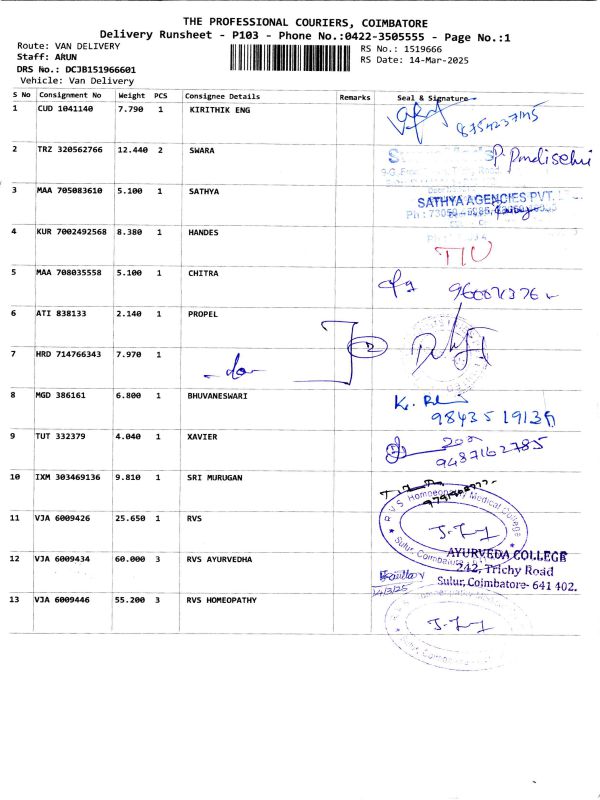 THE PROFESSIONAL COURIERS, COIMBATORE
Delivery Runsheet - P103 - Phone No.:0422-3505555 - Page No.:1
Route: VAN DELIVERY
Staff: ARUN
DRS No.: DCJB151966601
Vehicle: Van Delivery
RS No.: 1519666
RS Date: 14-Mar-2025
S No Consignment No Weight PCS Consignee Details Remarks Seal & Signature
1 CUD 1041140 7.790 1 KIRITHIK ENG 8754237145
2 TRZ 320562766 12.440 2 SWARA
3 MAA 705083610 5.100 1 SATHYA SATHYA AGENCIES PVT.
4 KUR 7002492568 8.380 1 HANDES
5 MAA 708035558 5.100 1 CHITRA
6 ATI 838133 2.140 1 PROPEL
7 HRD 714766343 7.970 1 -do-
8 MGD 386161 6.800 1 BHUVANESWARI
9 TUT 332379 4.040 1 XAVIER 9487162785
10 IXM 303469136 9.810 1 SRI MURUGAN
11 VJA 6009426 25.650 1 RVS
R V S Homoeopathy Medical College
Sulur, Coimbatore
12 VJA 6009434 60.000 3 RVS AYURVEDHA
AYURVEDA COLLEGE
242, Trichy Road
Sulur, Coimbatore- 641 402.
14/3/25
13 VJA 6009446 55.200 3 RVS HOMEOPATHY